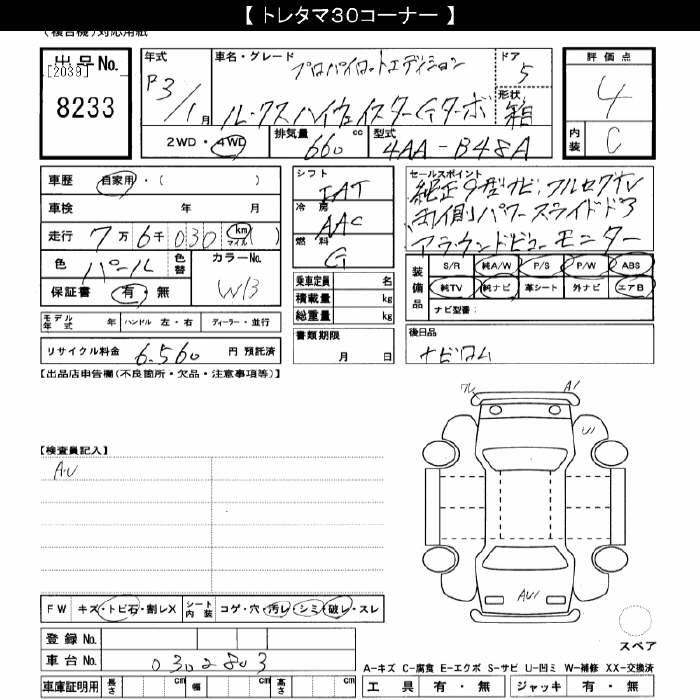 【 トレタマ30コーナー 】
(複合機)対応用紙
出品No.
[2039]
8233
年式
P3/1月
車名・グレード
プロパイロットエディション
ルークスハイウェイスターGターボ
ドア
5
形状
箱
評価点
4
内装
C
2WD・4WD
排気量
660 cc
型式
4AA-B48A
車歴 自家用・( )
車検 年 月
走行 7万6千030 km マイル ( )
色 パール
色替
カラーNo.
W13
保証書 有・無
モデル年式 年 ハンドル 左・右 ディーラー・並行
リサイクル料金 6,560 円 預託済
シフト
IAT
冷房
AAC
燃料
G
乗車定員 名
積載量 kg
総重量 kg
書類期限
月 日
セールスポイント
純正9型ナビ,フルセグTV
両側パワースライドドア
アラウンドビューモニター
装備品
S/R 純A/W P/S P/W ABS
純TV 純ナビ 革シート 外ナビ エアB
ナビ型番:
後日品
ナビロム
【出品店申告欄(不良箇所・欠品・注意事項等)】
【検査員記入】
AU
ワレ
A1
U1
AU1
FW キズ・トビ石・割レX
シート内装 コゲ・穴・汚レ・シミ・破レ・スレ
登録 No.
車台 No. 0302803
車庫証明用 長さ cm 幅 cm 高さ cm
スペア
A-キズ C-腐食 E-エクボ S-サビ U-凹ミ W-補修 XX-交換済
工具 有・無 ジャッキ 有・無